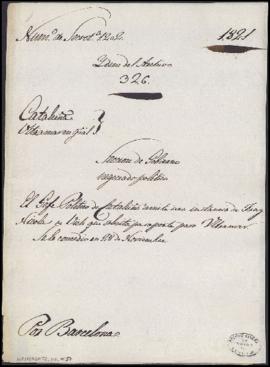 Num.º de Secret.ª 1202. 1821
Idem del Archivo
326.
Cataluña
Ultramar en gral.
Seccion de Gobierno
negociado politico
El Gefe Politico de Cataluña remite una instancia de
Nicolau en que solicita pasaporte para Ultramar.
Se le concedio en 28 de Noviembre.
Por Barcelona